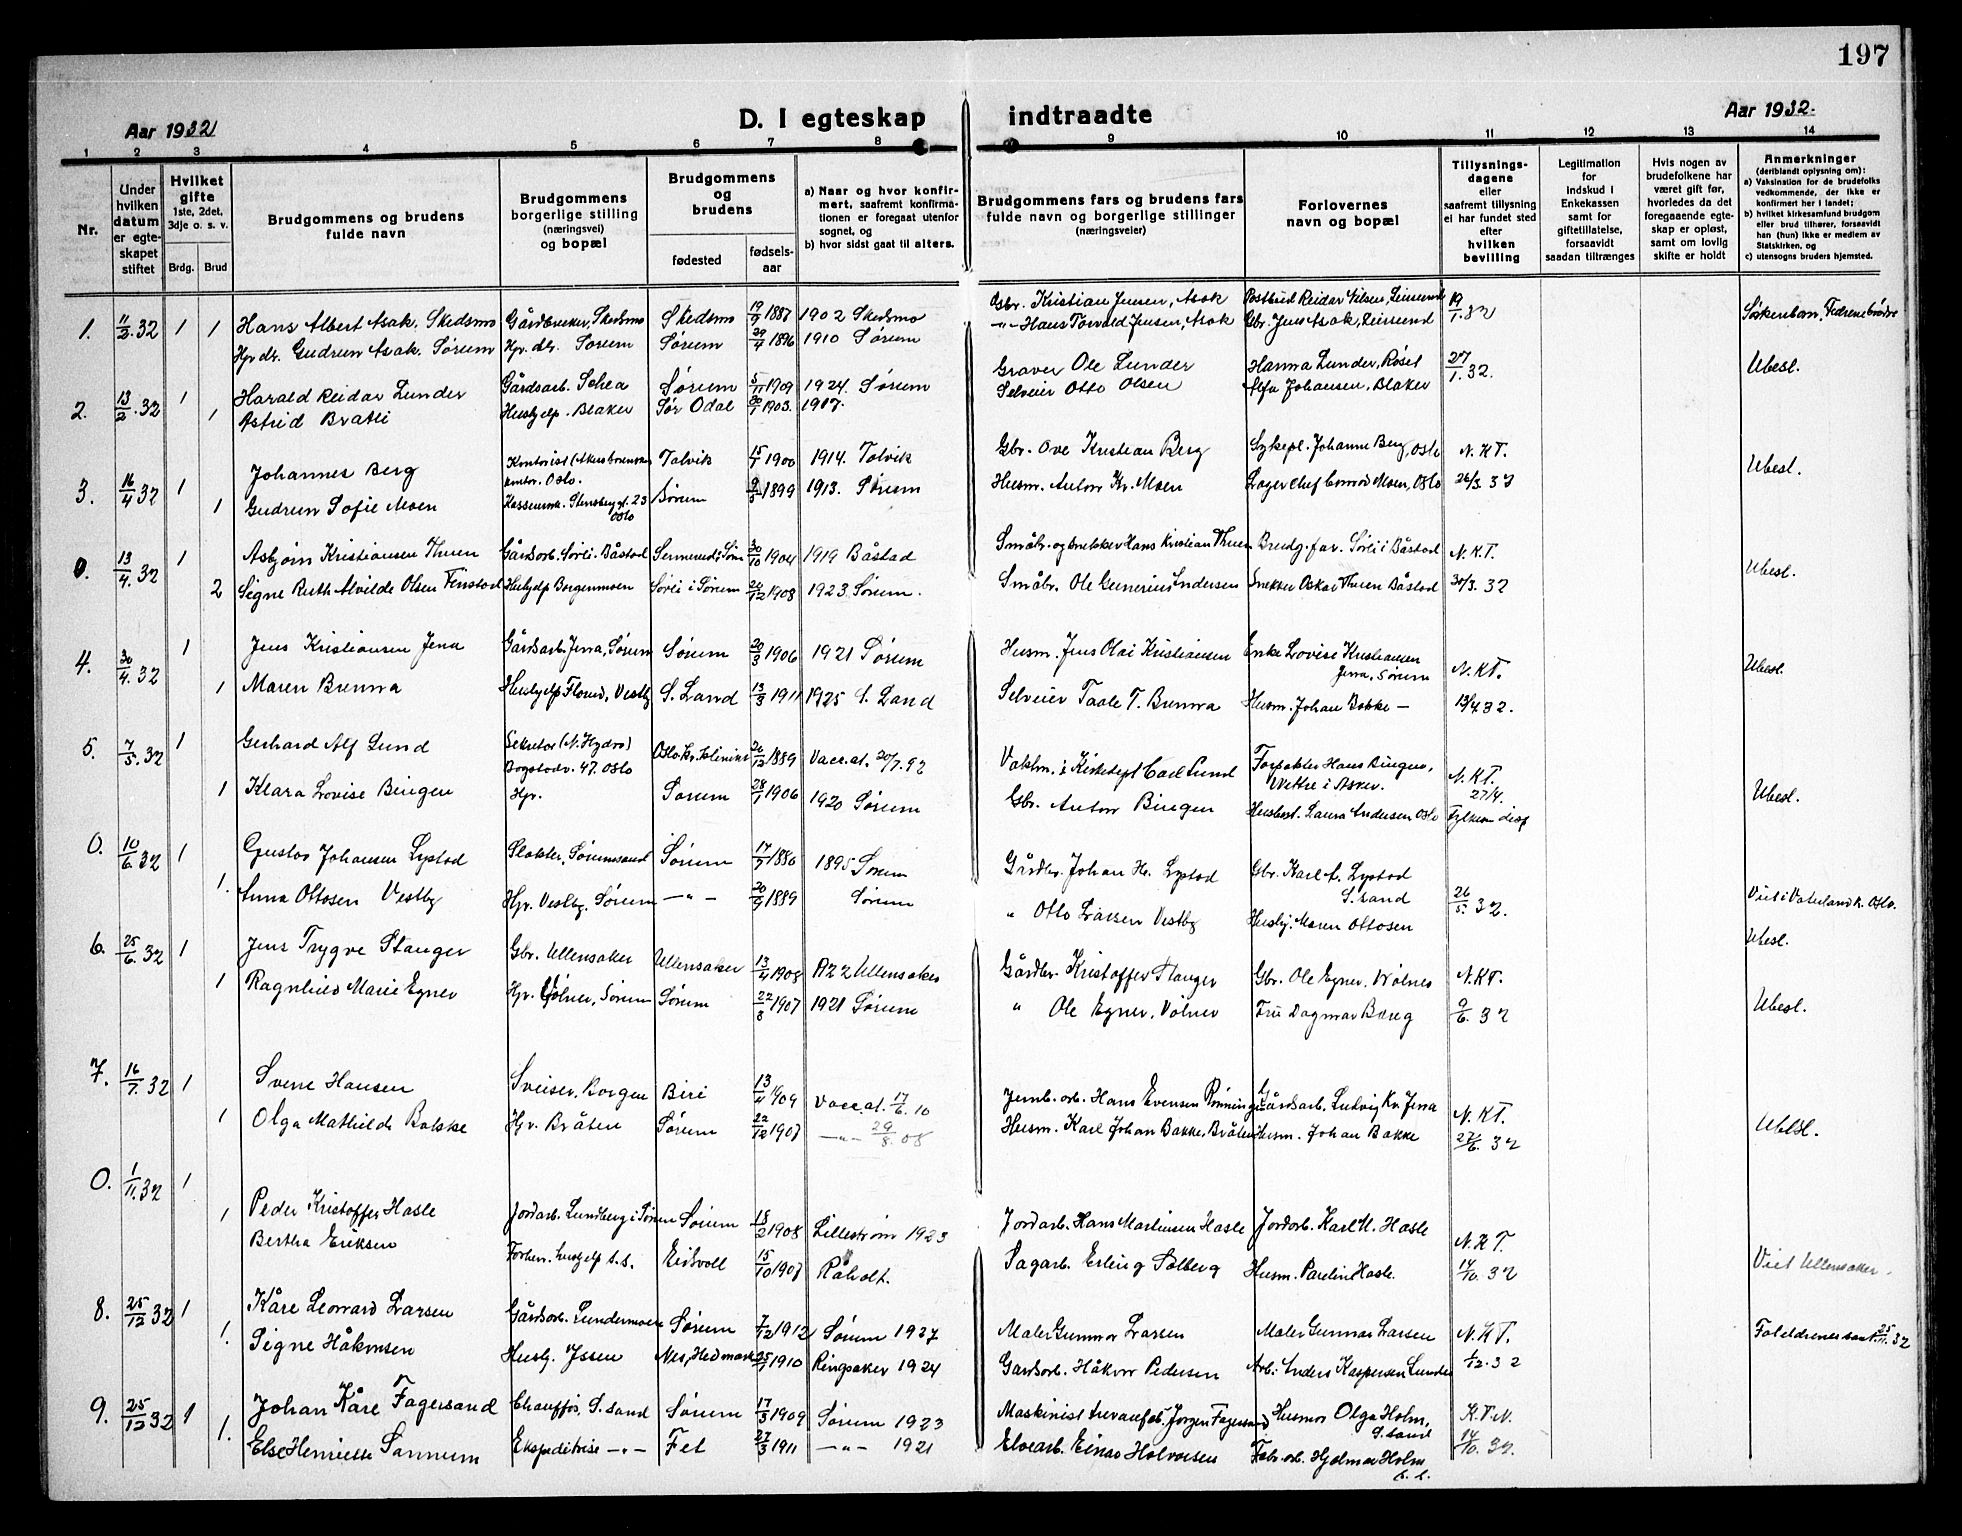 197
Aar 1932
D. I egteskap indtraadte
Aar 1932.
1 2 3 4 5 6 7 8 9 10 11 12 13 14
Nr.
Under hvilken datum er egteskapet stiftet
Hvilket gifte
1ste, 2det, 3dje o. s. v.
Brdg. Brud
Brudgommens og brudens fulde navn
Brudgommens borgerlige stilling (næringsvei) og bopæl
Brudgommens og brudens
fødested
fødsels-aar
a) Naar og hvor konfirmert, saafremt konfirmationen er foregaat utenfor sognet, og
b) hvor sidst gaat til alters.
Brudgommens fars og brudens fars fulde navn og borgerlige stillinger (næringsveier)
Forlovernes navn og bopæl
Tillysningsdagene eller saafremt tillysning ei har fundet sted efter hvilken bevilling
Legitimation for indskud i Enkekassen samt for giftetillatelse, forsaavidt saadan tiltrænges
Hvis nogen av brudefolkene har været gift før, hvorledes da det foregaaende egteskap er opløst, samt om lovlig skifte er holdt
Anmerkninger (deriblandt oplysning om):
a) Vaksination for de brudefolks vedkommende, der ikke er konfirmert her i landet;
b) hvilket kirkesamfund brudgom eller brud tilhører, forsaavidt han (hun) ikke er medlem av Statskirken, og
c) utensogns bruders hjemsted.
1. 11/2 32 1 1 Hans Albert Asak, Skedsmo Gårdbruker, Skedsmo Skedsmo 19/9 1887 1902 Skedsmo Gbr. Kristian Jensen, Asak Postbud Reidar Nilsen, Leirsund 19/1 32 Søskenbarn, Fedrene brødre
Hpr. dr. Gudrun Asak, Sørum Hpr. dtr. Sørum Sørum 29/4 1896 1910 Sørum -"- Hans Torvald Jensen, Asak Gbr. Jens Asak, Leirsund
2. 13/2 32 1 Harald Reidar Lunder Gårdsarb. Schea Sørum 5/11 1909 1924 Sørum Graver Ole Lunder Hanna Lunder, Røsel 27/1 32. Ubesl.
1 Astrid Bratli Hushjelp. Blaker Sør Odal 30/1 1903. 1917. Selveier Otto Olsen Alfa Johansen, Blaker
3. 16/4 32 1 Johannes Berg Kontorist (Akersborenske kontor. Oslo. Talvik 15/1 1900 1914. Talvik Gbr. Ove Kristian Berg Sykepl. Johanne Berg, Oslo N. K.T. Ubesl.
1 Gudrun Sofie Moen Kassererske. Stensberg gt. 23 Oslo Sørum 9/5 1899 1913. Sørum Husm. Anton Kr. Moen Lagerchef Conrad Moen, Oslo 26/3. 32
0. 13/4. 32 1 Asbjørn Kristiansen Thuen Gårdsarb. Sørli. Båstad 30/10 1904 1919 Båstad Småbr. og snekker Hans Kristian Thuen Brudg. far. Sørli i Båstad N. K.T. Ubesl.
2 Signe Ruth Alvilde Olsen Finstad Hushjelp Borgenmoen Sørli i Sørum 24/12 1908 1923 Sørum. Småbr. Ole Gunerius Andersen Snekker Oskar Thuen Båstad 30/3. 32
4. 30/4. 32 1 Jens Kristiansen Jena Gårdsarb. Jerra, Sørum Sørum 20/3 1906 1921 Sørum Husm. Jens Olai Kristiansen Enke Lovise Kristiansen Jerra, Sørum N. KT. Ubesl.
1 Maren Brenna S. Land 13/3 1911 1925 S. Land Selveier Taale T. Brenna Husm. Johan Bakke - 13/4 32.
5. 7/5. 32 1 Gerhard Alf Lund Sekretær (N. Hydro) Bogstadv. 47. Oslo Oslo kv. klinikk 26/12 1889 Vacc. at. 20/7. 92 Vaktm. i Kirkedept Carl Lund Forpakter Hans Bingen, Wettre i Asker. N. KT. 27/4. Ubesl.
1 Klara Lovise Bingen Hpr. Sørum 28/1 1906 1920 Sørum Gbr. Anton Bingen Husbest. Laura Andersen Oslo Fylkem disp
0. 10/6. 32 1 Gustav Johansen Lystad Slakter, Sørumsand Sørum 17/9 1880 1895 Sørum Gårdbr. Johan H. Lystad Gbr. Karl A. Lystad S. sand 26/5. 32. Viet i Vaterland k. Oslo.
1. Anna Ottosen Vestby Hpr. Vestby, Sørum -"- 20/9 1889 Sørum " Otto Larsen Vestby Hushj. Maren Ottosen
6. 25/6. 32 1 Jens Trygve Stanger Gbr. Ullensaker Ullensaker 13/4 1908 1922 Ullensaker Gårdbr. Kristoffer Stanger Gbr. Ole Egner, Vølner N. KT. Ubesl.
1 Ragnhild Marie Egner Hpr. Vølner, Sørum Sørum 22/8 1907 1921 Sørum " Ole Egner, Vølner Fru Dagmar Berg 9/6. 32 Ubesl.
7. 16/7. 32 1 Sverre Hansen Sveiser, Borgen Biri 13/4 1909 Vacc. at. 17/6. 10 Jernb. arb. Hans Evensen Rønningen Gårdsarb. Ludvig Kr. Jerra N. KT. Ubesl.
1 Olga Mathilde Bakke Hpr. Bråten Sørum 22/12 1907 -"- 29/8. 08 Husm. Karl Johan Bakke, Bråten Husm. Johan Bakke 27/6. 32
0. 1/11. 32 1 Peder Kristoffer Hasle Jordarb. Lundberg i Sørum Sørum 18/2 1908 Lillestrøm 1923 Jordarb. Hans Martinsen Hasle Jordarb. Karl M. Hasle N. K T. Viet Ullensaker.
1 Bertha Eriksen Forhen. hushjelp S.S. Eidsvoll 15/10 1907 Råholt. Sagarb. Erling Solberg Husm. Pauline Hasle. 14/10. 32
8. 25/12 32 1 Kåre Leonard Larsen Gårdsarb. Lundermoen Sørum 7/12 1912 Sørum 1927 Maler Gunnar Larsen Maler Gunnar Larsen N. KT. 25/11. 32
1. Signe Håkonsen Hushj. Issen Nes, Hedmark 25/1 1910 Ringsaker 1924 Gårdsarb. Håkon Pedersen Arb. Anders Kaspersen Lunder 1/12. 32
9. 25/12 32 1 Johan Kåre Fagersand Chauffør, S. sand Sørum 17/3 1909 Sørum 1923 Maskinist trevarefab. Jørgen Fagersand Husmor Olga Holm, S. sand K.T.N.
1. Else Henriette Sannum Ekspeditrise -"- Fet 27/3 1911 -"- 1921 Elvearb. Einar Halvorsen Fabr. arb. Hjalmar Holm S. S. 14/10. 32.